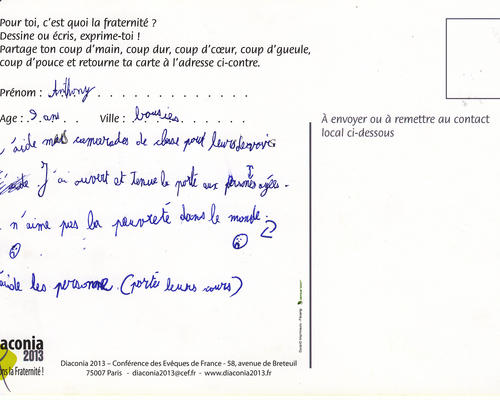 Pour toi, c'est quoi la fraternité ?
Dessine ou écris, exprime-toi !
Partage ton coup d'main, coup dur, coup d'cœur, coup d'gueule,
coup d'pouce et retourne ta carte à l'adresse ci-contre.
Prénom : Anthony
Age : 9 ans Ville :
À envoyer ou à remettre au contact
local ci-dessous
'aide mes camarades de classe pour leurs devoirs
J'ai ouvert et tenue la porte aux personnes agées.
n'aime pas la pauvreté dans le monde.
aide les personne. (porté leurs cours)
iaconia
2013
ons la Fraternité !
Diaconia 2013 – Conférence des Evêques de France - 58, avenue de Breteuil
75007 Paris - diaconia2013@cef.fr - www.diaconia2013.fr